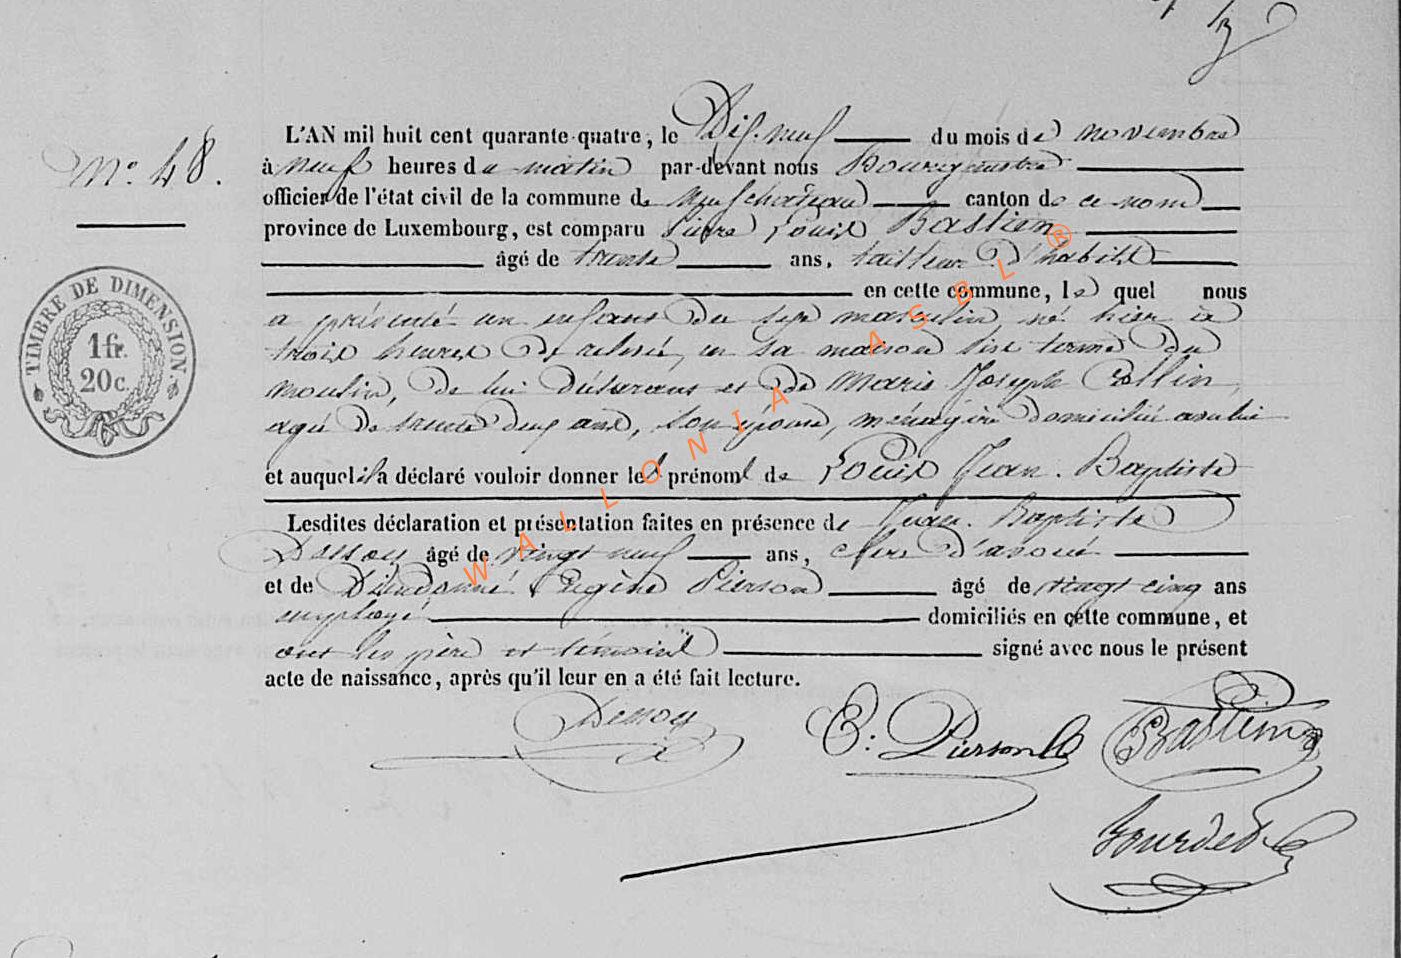 N.° 48.
TIMBRE DE DIMENSION
1 fr.
20 c.
L'AN mil huit cent quarante-quatre, le Dix-neuf du mois de novembre
à neuf heures du matin par-devant nous Bourgmestre
officier de l'état civil de la commune de Neufchateau canton de ce nom
province de Luxembourg, est comparu Pierre Louis Bastien
âgé de trente ans, tailleur d'habits
en cette commune, le quel nous
a présenté un enfant du sexe masculin, né hier à
trois heures de relevée, en sa maison sise terme du
moulin, de lui déclarant et de Marie Joseph Collin,
agée de trente deux ans, son épouse, ménagère domiciliée avec lui
et auquel il a déclaré vouloir donner les prénoms de Louis Jean-Baptiste
Lesdites déclaration et présentation faites en présence de Jean-Baptiste
Dessoy âgé de vingt-neuf ans, clerc d'avoué
et de Dieudonné Eugène Pierson âgé de vingt cinq ans
employé domiciliés en cette commune, et
ont les père et témoins signé avec nous le présent
acte de naissance, après qu'il leur en a été fait lecture.
Dessoy E: Pierson Bastien
Bourdet
WALLONIA ASBL ®